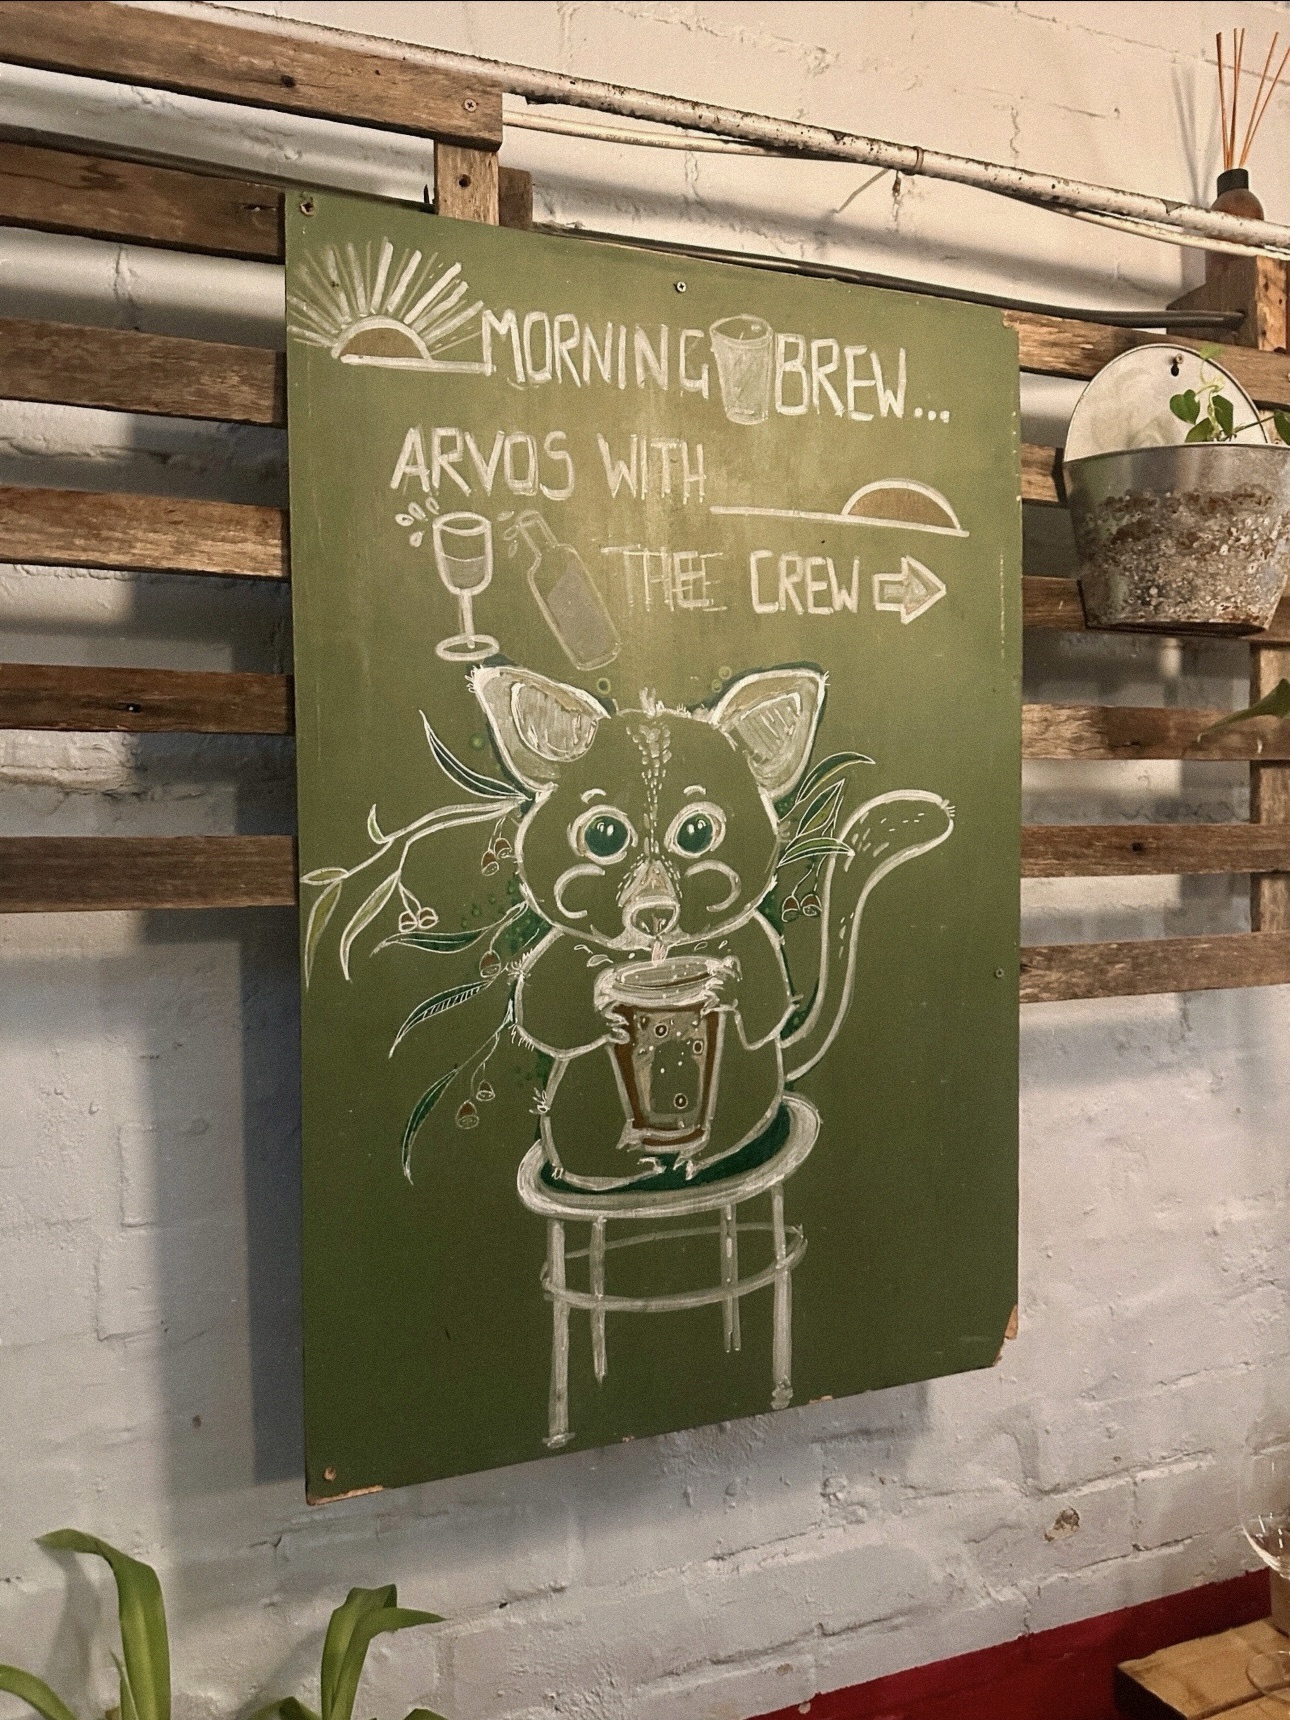 MORNING BREW...
ARVOS WITH
THE CREW